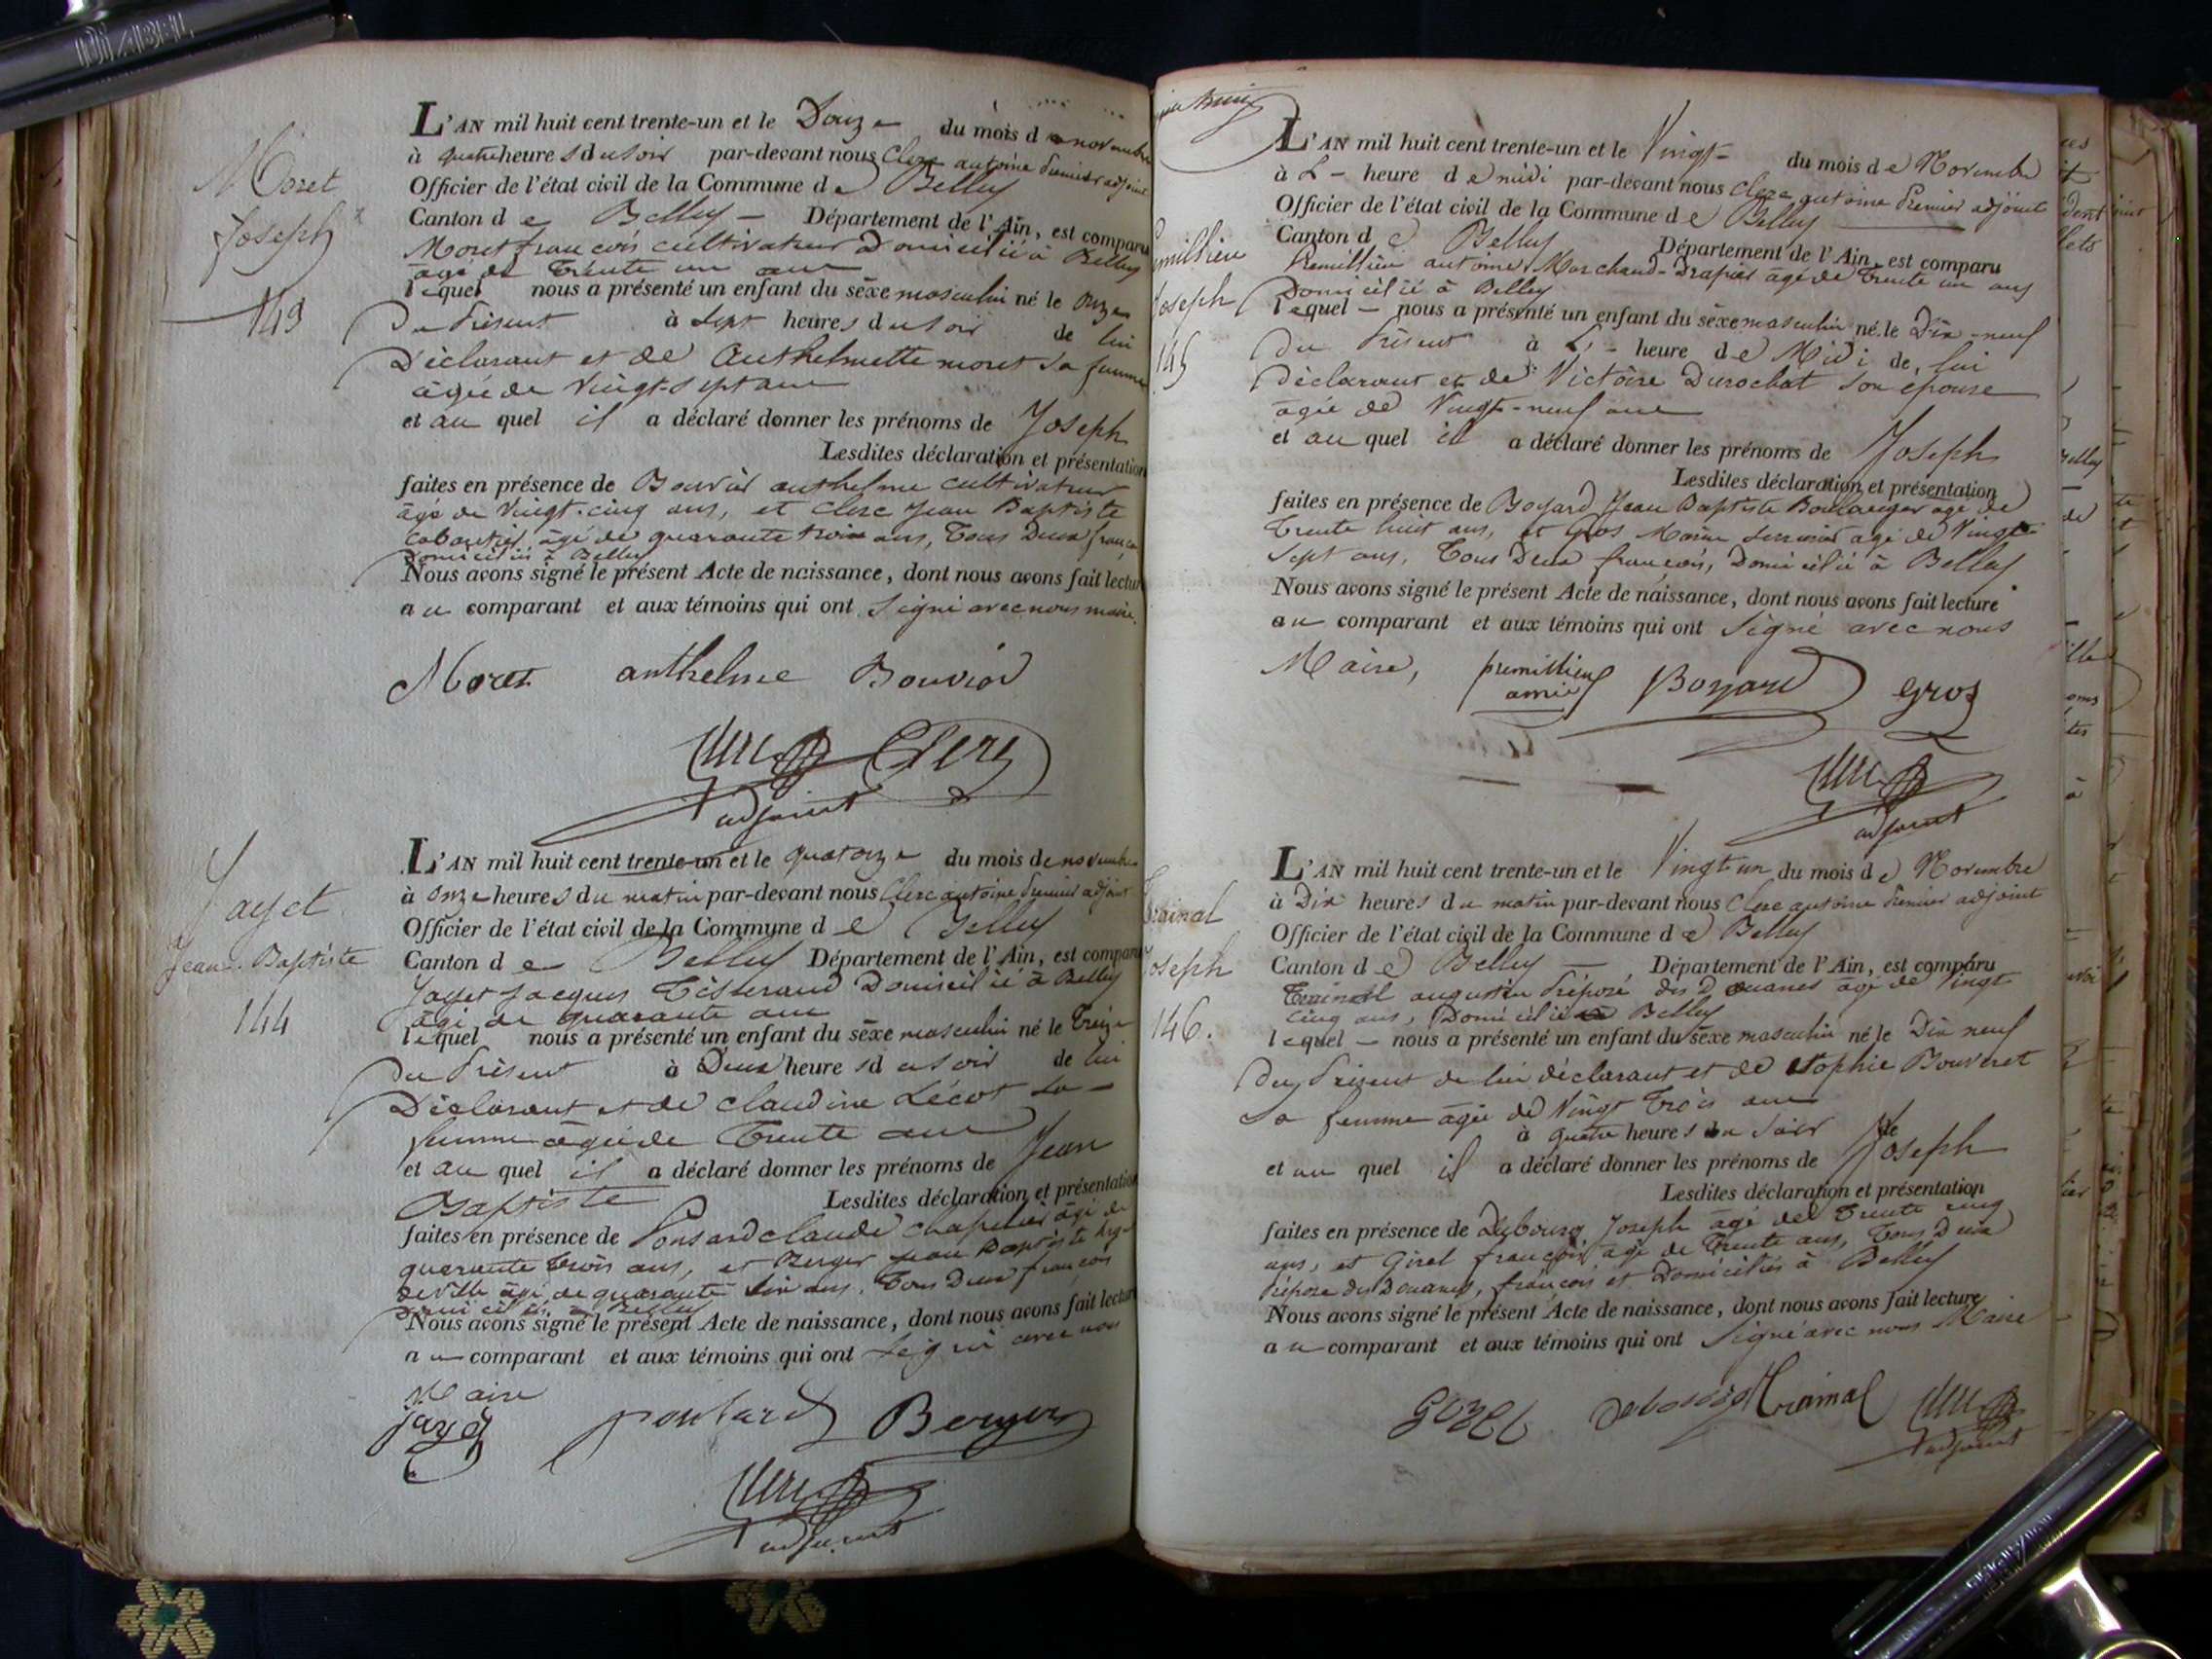 Moret
Joseph
143
L'AN mil huit cent trente-un et le Douze du mois de novembre
à quatre heures du soir par-devant nous Clerc antoine Premier adjoint
Officier de l'état civil de la Commune de Belley
Canton de Belley — Département de l'Ain, est comparu
Moret françois cultivateur Domicilié à Belley
âgé de Trente un ans
lequel nous a présenté un enfant du sèxe masculin né le onze
Du Présent à Sept heures du soir de lui
Déclarant et de Anthelmette moret Sa femme
âgée de Vingt-Sept ans
et au quel il a déclaré donner les prénoms de Joseph
Lesdites déclaration et présentation
faites en présence de Bouvier anthelme cultivateur
âgé de Vingt-cinq ans, et Clerc Jean Baptiste
Cabaretier âgé de quarante trois ans, Tous Deux français
Domiciliés à Belley
Nous avons signé le présent Acte de naissance, dont nous avons fait lecture
au comparant et aux témoins qui ont Signé avec nous maire.
Moret anthelme Bouvier
Clerc Clerc
adjoint
Jayet
Jean-Baptiste
144
L'AN mil huit cent trente-un et le quatorze du mois de novembre
à onze heures du matin par-devant nous Clerc antoine Premier adjoint
Officier de l'état civil de la Commune de Belley
Canton de Belley Département de l'Ain, est comparu
Jayet Jacques Tisserand Domicilié à Belley
âgé de quarante ans
lequel nous a présenté un enfant du sèxe masculin né le Treize
Du Présent à Deux heures du soir de lui
Déclarant et de Claudine Lécot Sa
femme âgée de Trente ans
et au quel il a déclaré donner les prénoms de Jean
Baptiste Lesdites déclaration et présentation
faites en présence de Ponsard claude Chapelier âgé de
quarante trois ans, et Berger Jean Baptiste
de Ville âgé de quarante ans. Tous Deux français
domiciliés à Belley
Nous avons signé le présent Acte de naissance, dont nous avons fait lecture
au comparant et aux témoins qui ont Signé avec nous
Maire
jayet ponsard Berger
Clerc
adjoint
Premillieu
Joseph
145
L'AN mil huit cent trente-un et le Vingt du mois de Novembre
à L — heure de midi par-devant nous Clerc antoine Premier adjoint
Officier de l'état civil de la Commune de Belley
Canton de Belley Département de l'Ain, est comparu
Premillieu antoine Marchand-Drapier âgé de Trente un ans
Domicilié à Belley
lequel — nous a présenté un enfant du sèxe masculin né le Dix-neuf
Du Présent à L' — heure de Midi de lui
Déclarant et de Victoire Durochat Son épouse
âgée de Vingt-neuf ans
et au quel il a déclaré donner les prénoms de Joseph
Lesdites déclaration et présentation
faites en présence de Boyard Jean Baptiste Boulanger âgé de
Trente huit ans, et Gros Marin Serrurier âgé de Vingt-
Sept ans, Tous Deux françois, Domicilié à Belley
Nous avons signé le présent Acte de naissance, dont nous avons fait lecture
au comparant et aux témoins qui ont Signé avec nous
Maire, premillieu Boyard Gros
Clerc
adjoint
Trainal
Joseph
146.
L'AN mil huit cent trente-un et le Vingt-un du mois de Novembre
à Dix heures du matin par-devant nous Clerc antoine Premier adjoint
Officier de l'état civil de la Commune de Belley
Canton de Belley — Département de l'Ain, est comparu
Trainal augustin Préposé des Douanes âgé de Vingt
cinq ans, Domicilié à Belley
lequel — nous a présenté un enfant du sèxe masculin né le Dix neuf
Du Présent de lui déclarant et de Sophie Bouveret
Sa femme âgée de Vingt Trois ans
à quatre heures du Soir
et au quel il a déclaré donner les prénoms de Joseph
Lesdites déclaration et présentation
faites en présence de Debourg Joseph âgé de Trente cinq
ans, et Girel françois âgé de Trente ans, Tous Deux
Préposé des Douanes, françois et Domiciliés à Belley
Nous avons signé le présent Acte de naissance, dont nous avons fait lecture
au comparant et aux témoins qui ont Signé avec nous Maire
Trainal Clerc
adjoint